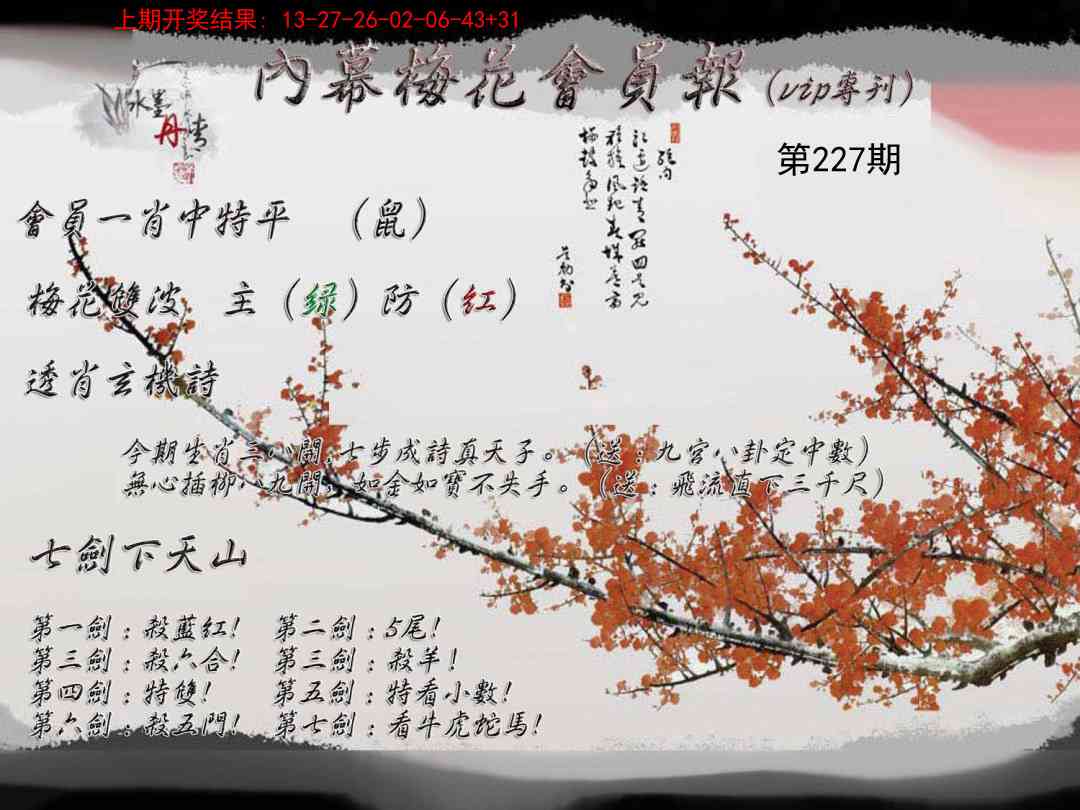 上期开奖结果: 13-27-26-02-06-43+31
內幕梅花會員報(vip專刊)
水墨
丹青
第227期
會員一肖中特平 (鼠)
梅花雙波 主(绿)防(红)
透肖玄機詩
今期生肖三八開,七步成詩真天子。(送:九宮八卦定中數)
無心插柳八九開,如金如寶不失手。(送:飛流直下三千尺)
七劍下天山
第一劍:殺藍紅! 第二劍:5尾!
第三劍:殺六合! 第三劍:殺羊!
第四劍:特雙! 第五劍:特看小數!
第六劍:殺五門! 第七劍:看牛虎蛇馬!